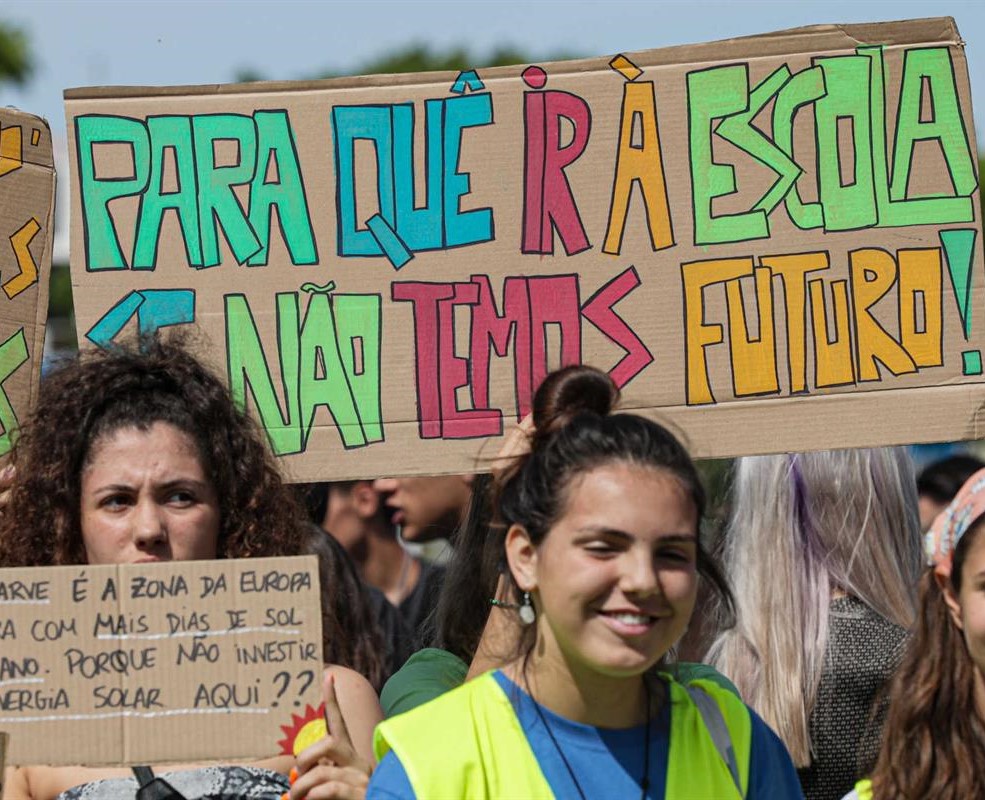 PARA QUÊ iR À ESCOLA
SE NÃO TEMOS FUTURO!
ARVE É A ZONA DA EUROPA
COM MAIS DIAS DE SOL
ANO. PORQUE NÃO INVESTIR
NERGIA SOLAR AQUI??